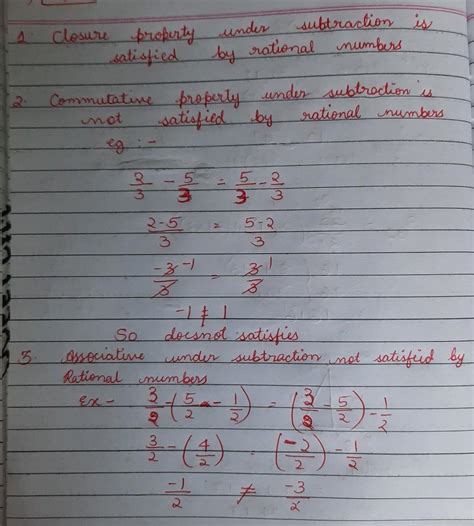 1. Closure property under subtraction is
satisfied by rational numbers
2. Commutative property under subtraction is
not satisfied by rational numbers
eg :-
2/3 - 5/3 = 5/3 - 2/3
2-5/3 = 5-2/3
-3/3 -1 = 3/3 1
-1 ≠ 1
So doesnot satisfies
3. Associative under subtraction not satisfied by
Rational numbers
Ex - 3/2 - (5/2 - 1/2) = (3/2 - 5/2) - 1/2
3/2 - (4/2) = (-2/2) - 1/2
-1/2 ≠ -3/2